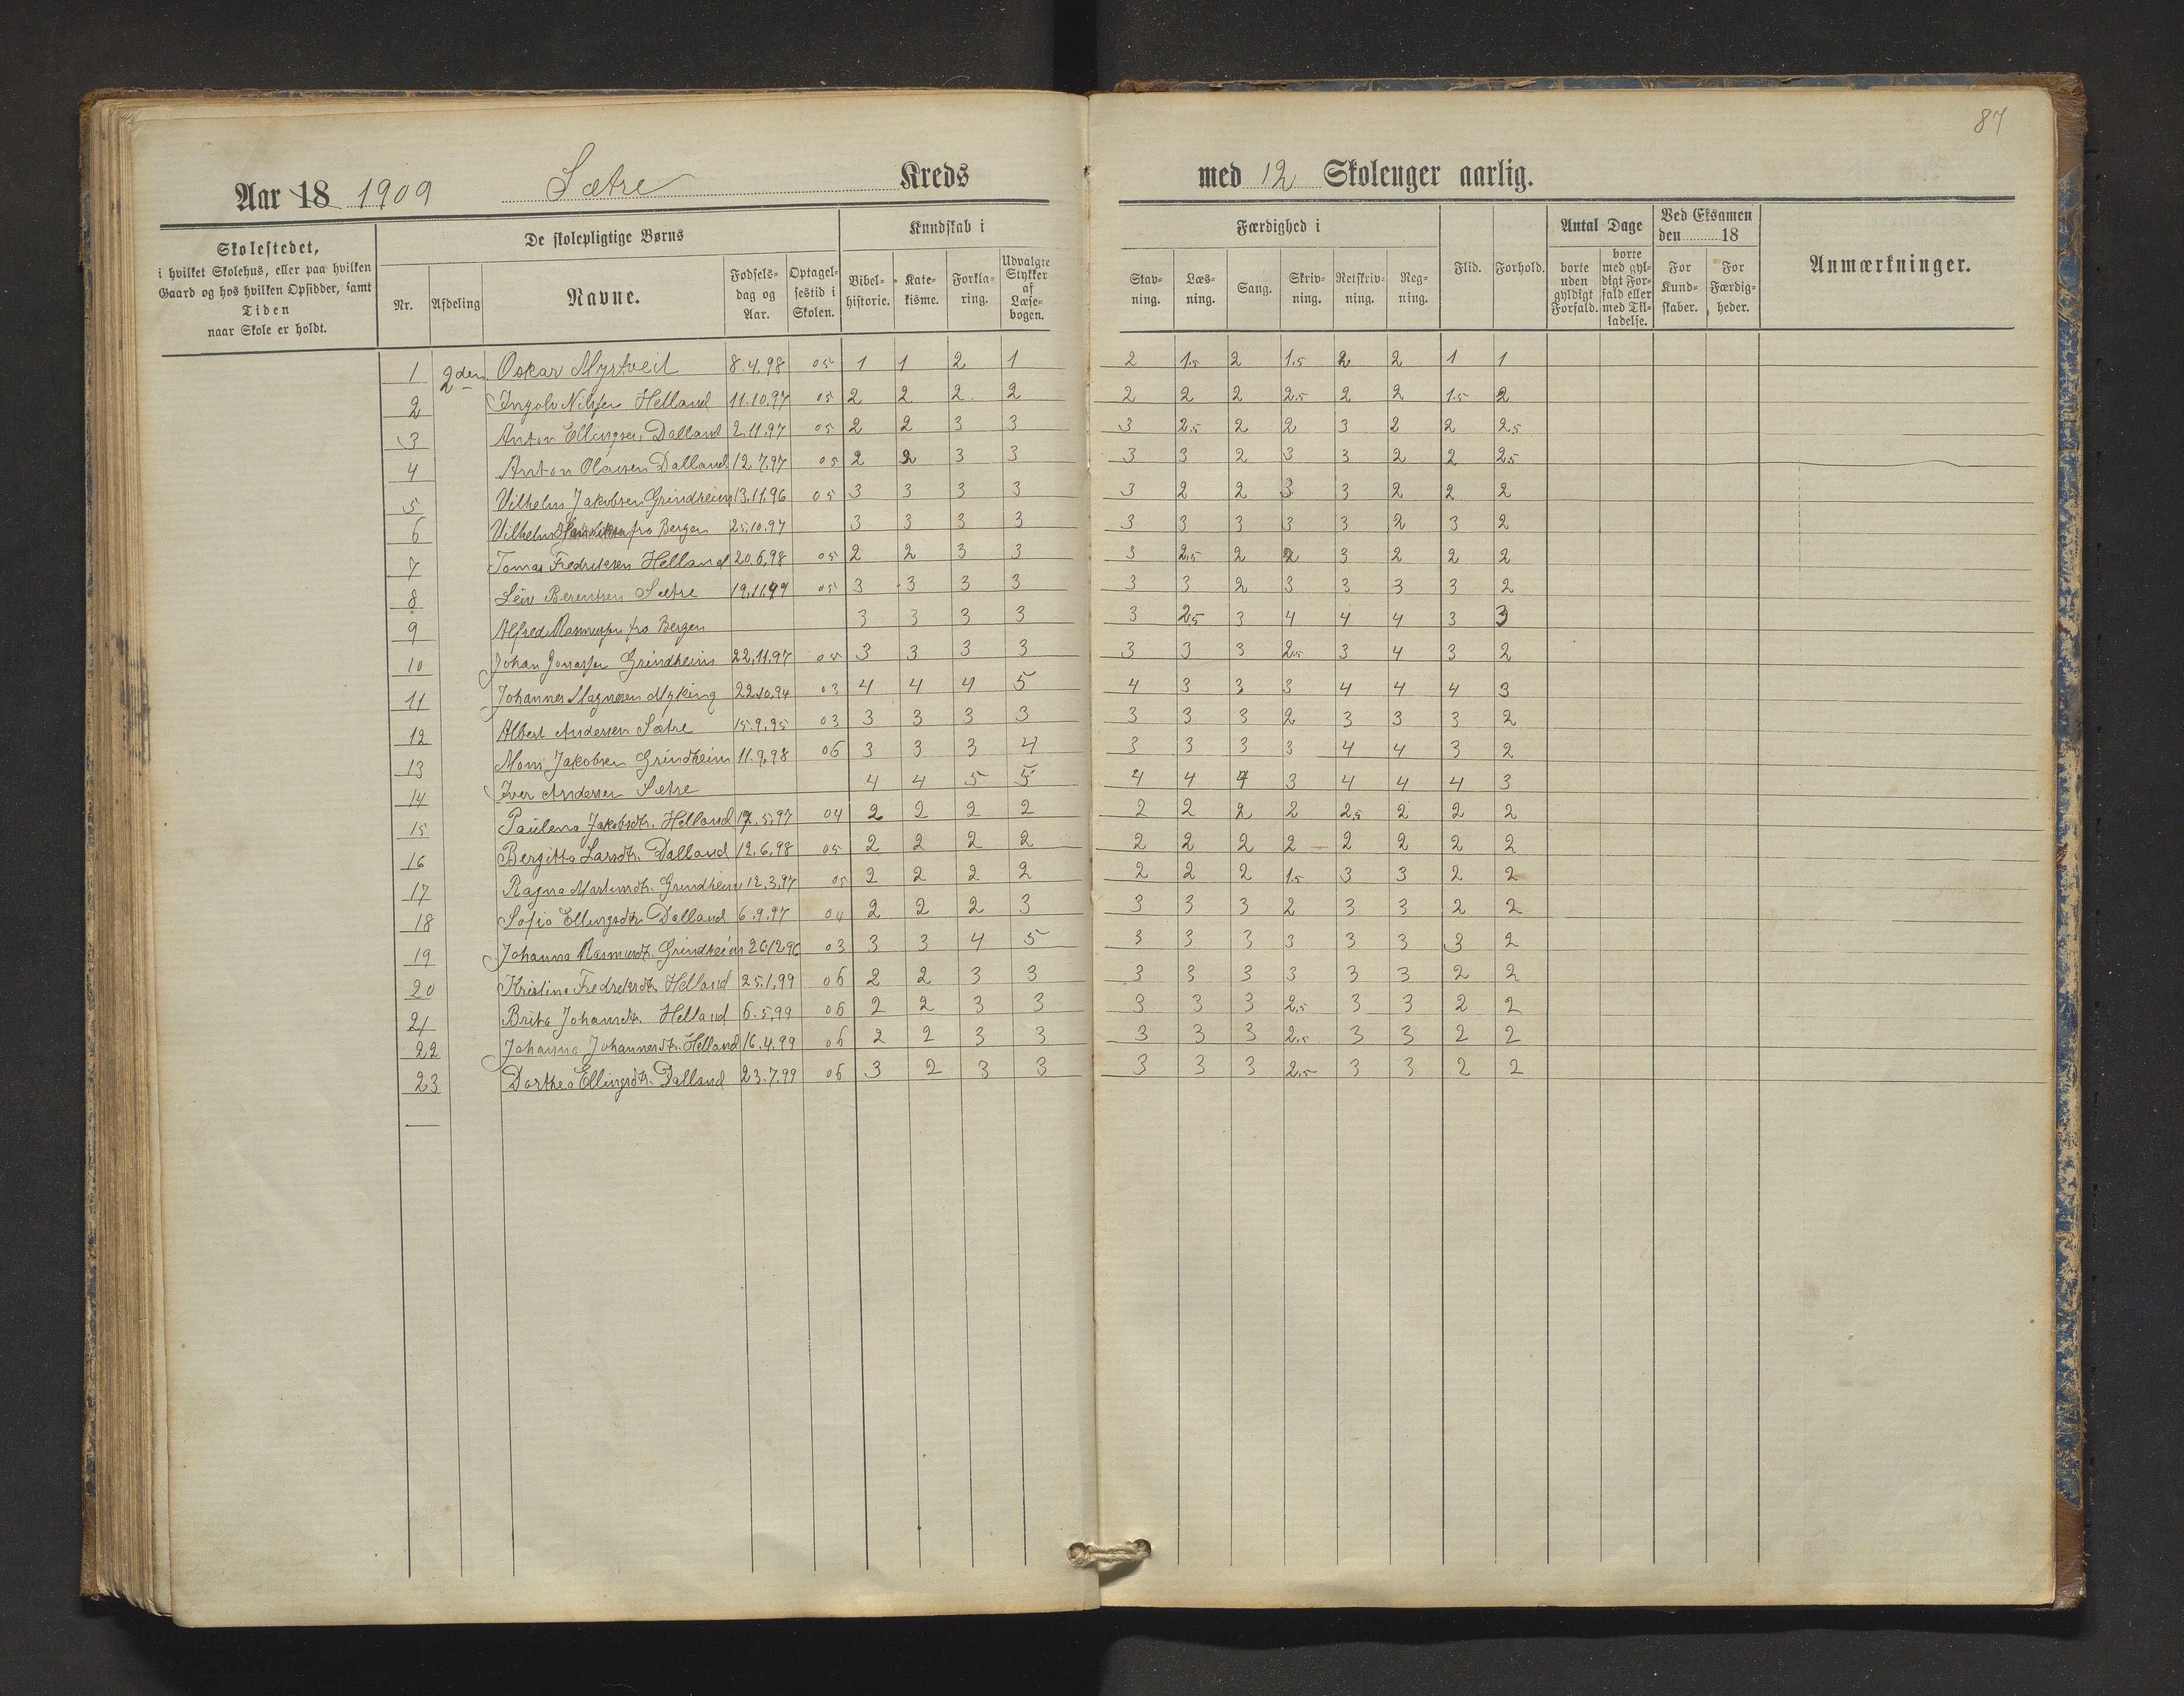 87
Aar 18 1909 Sætre Kreds med 12 Skolenger aarlig.
Skolestedet,
i hvilket Skolehus, eller paa hvilken
Gaard og hos hvilken Opsidder, samt
Tiden
naar Skole er holdt.
De skolepligtige Børns
Nr. Afdeling Navne. Fødsels-dag og Aar. Optagel-sestid i Skolen.
Kundskab i
Bibel-historie. Kate-kisme. Forkla-ring. Udvalgte Stykker af Læse-bogen.
Færdighed i
Stav-ning. Læs-ning. Sang. Skriv-ning. Retskriv-ning. Reg-ning.
Flid. Forhold.
Antal Dage
borte uden gyldigt Forfald. borte med gyl-digt For-fald eller med Til-ladelse.
Ved Eksamen
den 18
For Kund-skaber. For Færdig-heder.
Anmærkninger.
1 2den Oskar Myrtveit 8.4.98 05 1 1 2 1 2 1.5 2 1.5 2 2 1 1
2 Ingolv Nilsen Helland 11.10.97 05 2 2 2 2 2 2 2 2.5 2 2 1.5 2
3 Anton Ellingsen Dalland 2.11.97 05 2 2 3 3 3 2.5 2 2 3 2 2 2.5
4 Anton Olaisen Dalland 12.7.97 05 2 2 3 3 3 3 2 3 3 2 2 2.5
5 Vilhelm Jakobsen Grindheim 13.11.96 05 3 3 3 3 3 2 2 3 3 2 2 2
6 Vilhelm fra Bergen 25.10.97 3 3 3 3 3 3 3 3 3 2 3 2
7 Tomas Fredriksen Helland 20.6.98 05 2 2 3 3 3 2.5 2 2 3 2 2 2
8 Leiv Berentsen Sætre 19.11.99 05 3 3 3 3 3 3 2 3 3 3 3 2
9 Alfred Rasmussen fra Bergen 3 3 3 3 3 2.5 3 4 4 4 3 3
10 Johan Jonassen Grindheim 22.11.97 05 3 3 3 3 3 3 3 2.5 3 4 3 2
11 Johannes Magnesen Myking 22.10.94 03 4 4 4 5 4 3 3 3 4 4 4 3
12 Albert Andersen Sætre 15.9.95 03 3 3 3 3 3 3 3 2 3 3 3 2
13 Mons Jakobsen Grindheim 11.9.98 06 3 3 3 4 3 3 3 3 4 4 3 2
14 Iver Andersen Sætre 4 4 5 5 4 4 4 3 4 4 4 3
15 Paulena Jakobsdtr. Helland 12.5.97 04 2 2 2 2 2 2 2 2 2.5 2 2 2
16 Bergitta Larsdtr. Dalland 12.6.98 05 2 2 2 2 2 2 2 2 2 2 2 2
17 Ragna Martinsdtr. Grindheim 12.3.97 05 2 2 2 2 2 2 2 1.5 3 3 2 2
18 Sofia Ellingsdtr. Dalland 6.9.97 04 2 2 2 3 3 3 3 2 3 3 2 2
19 Johanna Rasmusdtr. Grindheim 26.12.96 03 3 3 4 5 3 3 3 3 3 3 3 2
20 Kristine Fredriksdtr. Helland 25.1.99 06 2 2 3 3 3 3 3 3 3 3 2 2
21 Brita Johansdtr. Helland 6.5.99 06 2 2 3 3 3 3 3 2.5 3 3 2 2
22 Johanna Johannesdtr. Helland 16.4.99 06 2 2 3 3 3 3 3 2.5 3 3 2 2
23 Dorthea Ellingsdtr. Dalland 23.7.99 06 3 2 3 3 3 3 3 2.5 3 3 2 2